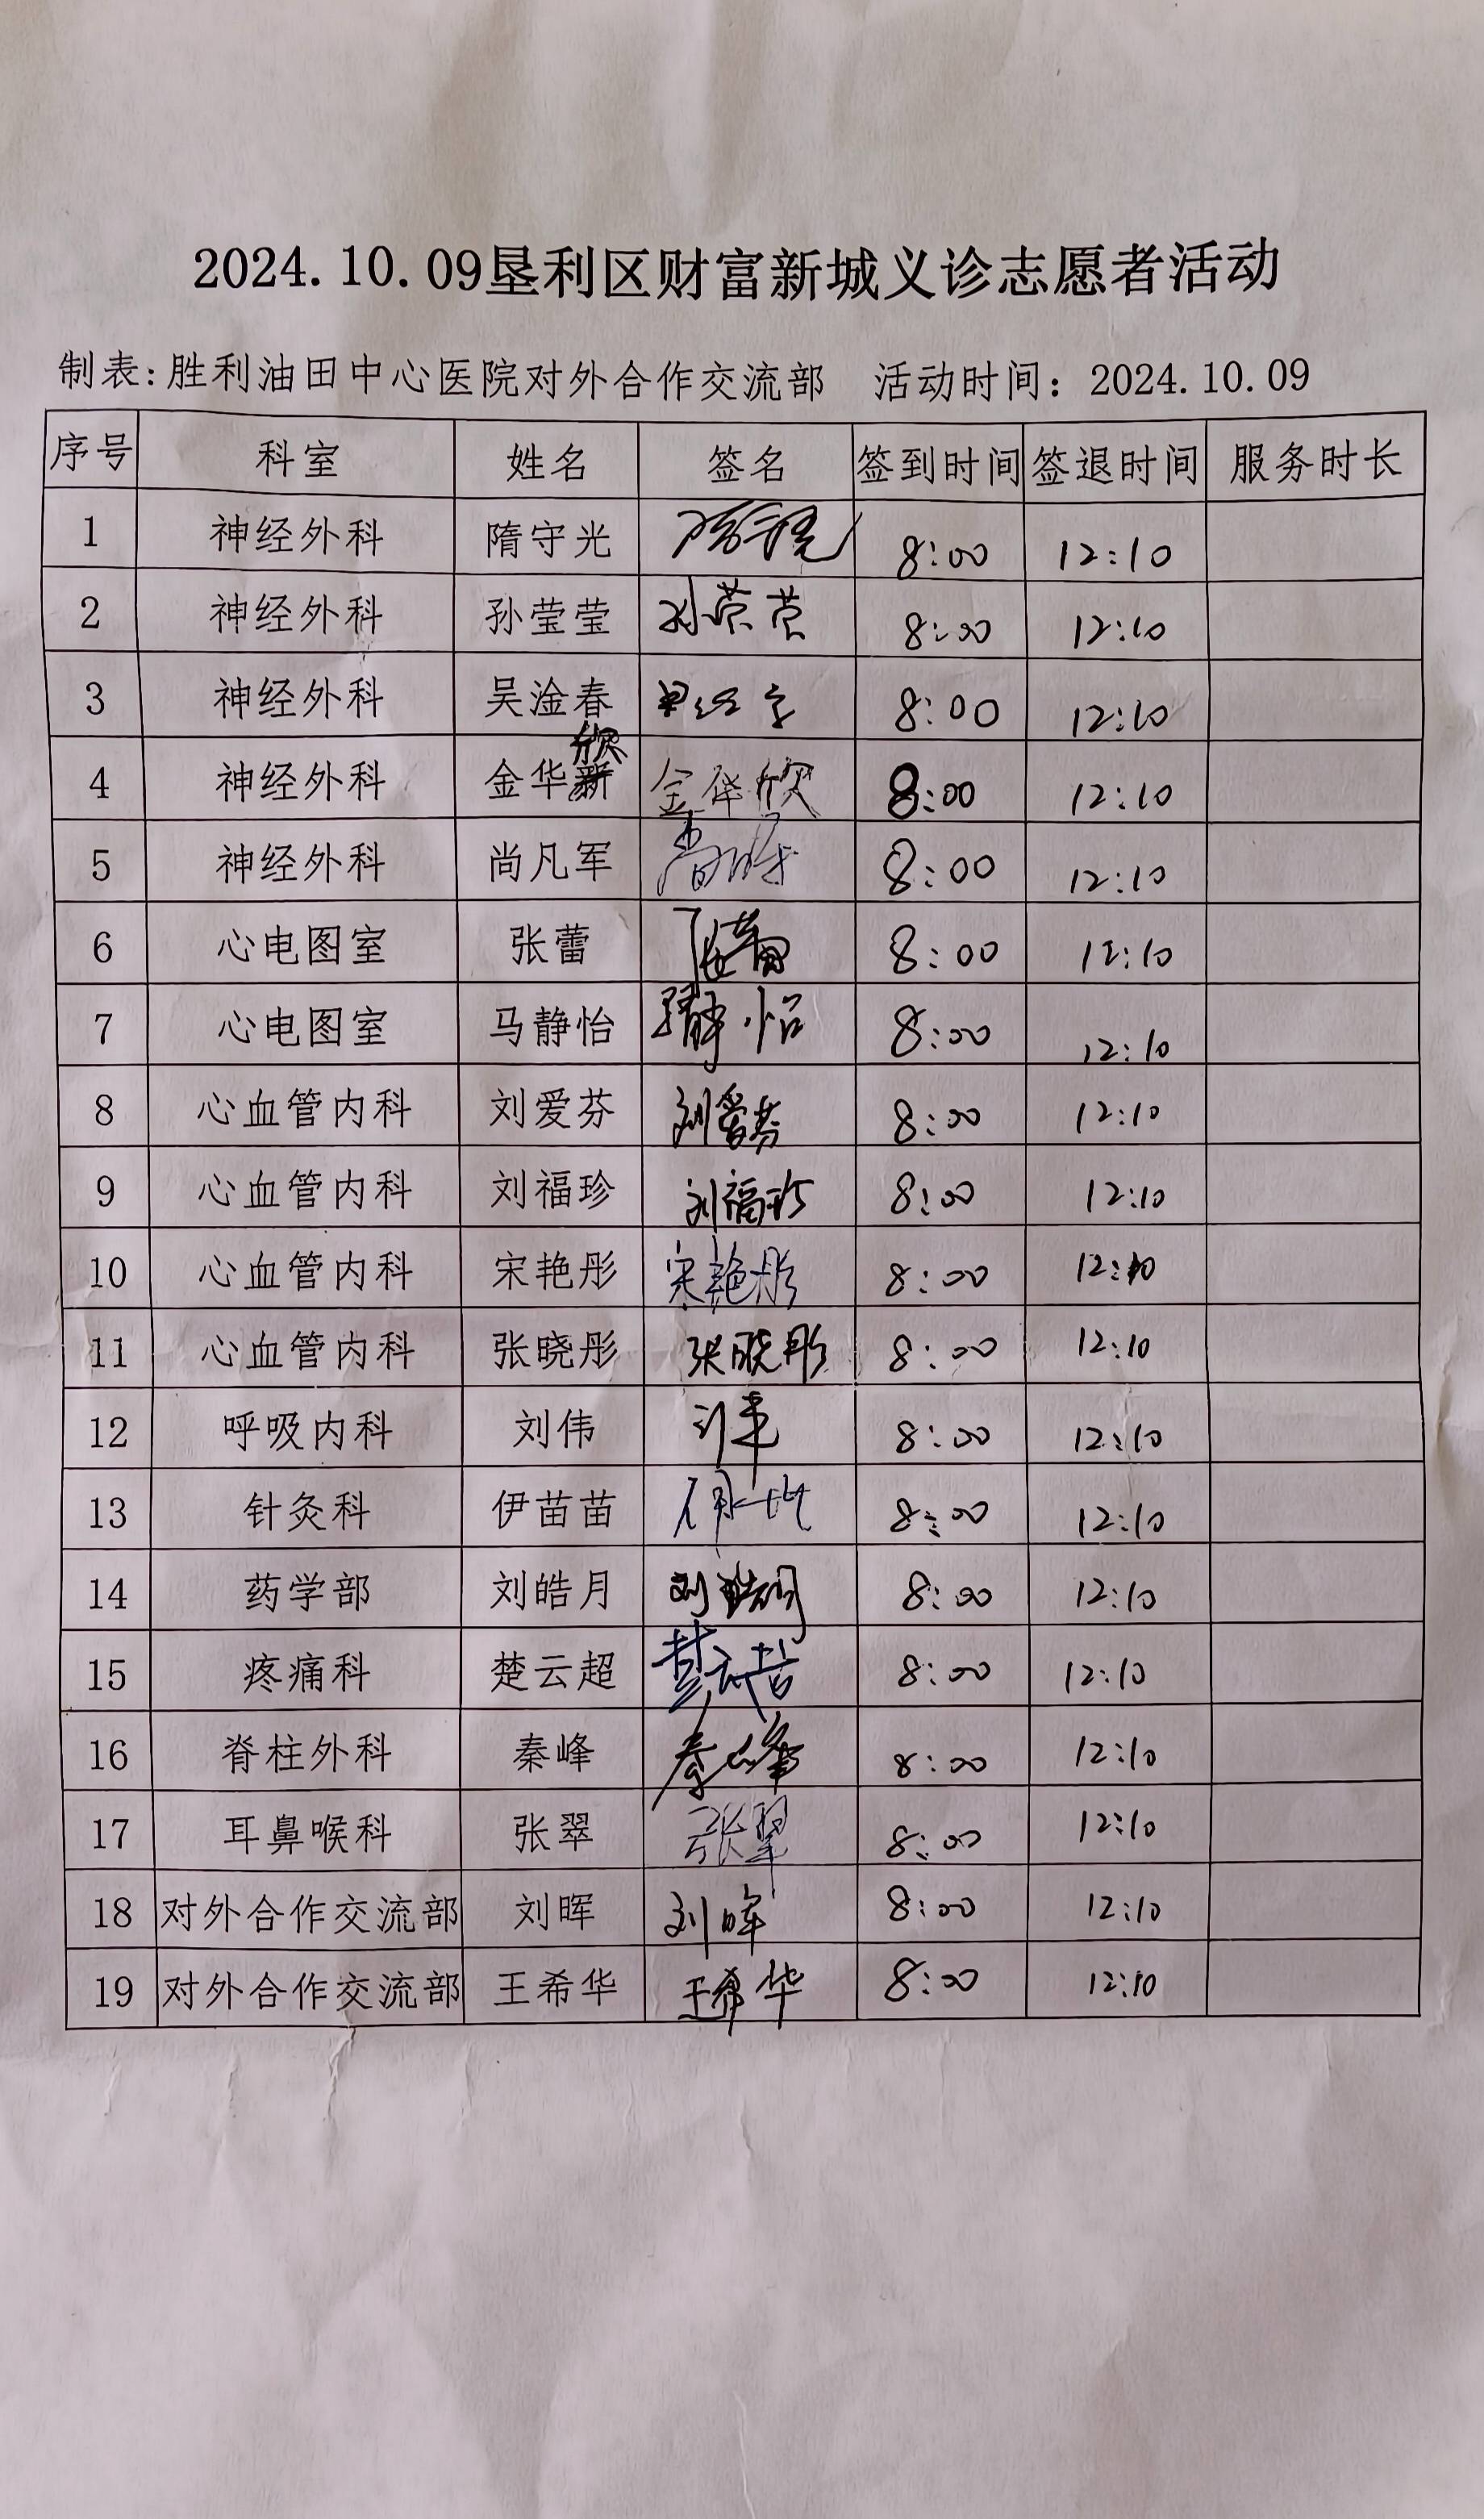 2024.10.09垦利区财富新城义诊志愿者活动
制表:胜利油田中心医院对外合作交流部 活动时间：2024.10.09
序号 科室 姓名 签名 签到时间 签退时间 服务时长
1 神经外科 隋守光 8:00 12:10
2 神经外科 孙莹莹 孙莹莹 8:00 12:10
3 神经外科 吴淦春 8:00 12:10
欣
4 神经外科 金华新 金华欣 8:00 12:10
5 神经外科 尚凡军 8:00 12:10
6 心电图室 张蕾 张蕾 8:00 12:10
7 心电图室 马静怡 马静怡 8:00 12:10
8 心血管内科 刘爱芬 刘爱芬 8:00 12:10
9 心血管内科 刘福珍 刘福珍 8:00 12:10
10 心血管内科 宋艳彤 宋艳彤 8:00 12:10
11 心血管内科 张晓彤 张晓彤 8:00 12:10
12 呼吸内科 刘伟 刘伟 8:00 12:10
13 针灸科 伊苗苗 8:00 12:10
14 药学部 刘皓月 刘皓月 8:00 12:10
15 疼痛科 楚云超 楚云超 8:00 12:10
16 脊柱外科 秦峰 秦峰 8:00 12:10
17 耳鼻喉科 张翠 张翠 8:00 12:10
18 对外合作交流部 刘晖 刘晖 8:00 12:10
19 对外合作交流部 王希华 王希华 8:00 12:10